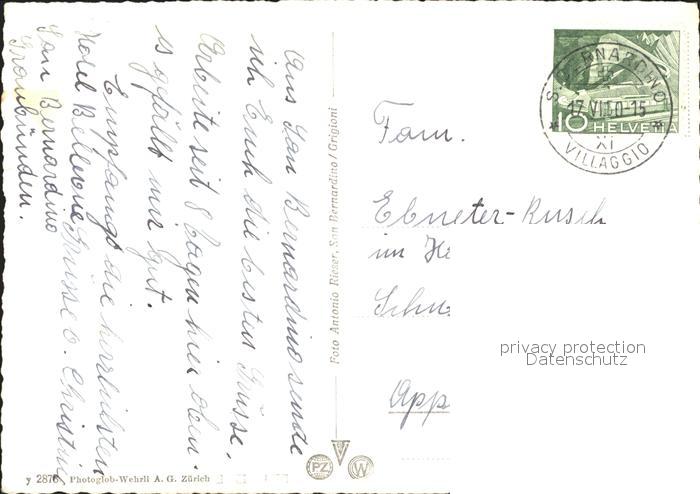 Aus San Bernardino sende
ich Euch die besten Grüsse.
Arbeite seit 8 Tagen hier oben.
es gefällt mir gut.
Empfangt die herzlichsten
Grüsse v. Christin
Hotel Bellevue
San Bernardino
Graubünden.
Foto Antonio Rieser, San Bernardino / Grigioni
Fam.
Ebneter-Rusch
im He
Schw
App
S. BERNARDINO
17.VI.50-15
XI
VILLAGGIO
10 HELVETIA
privacy protection
Datenschutz
PZ
W
y 2876 Photoglob-Wehrli A. G. Zürich